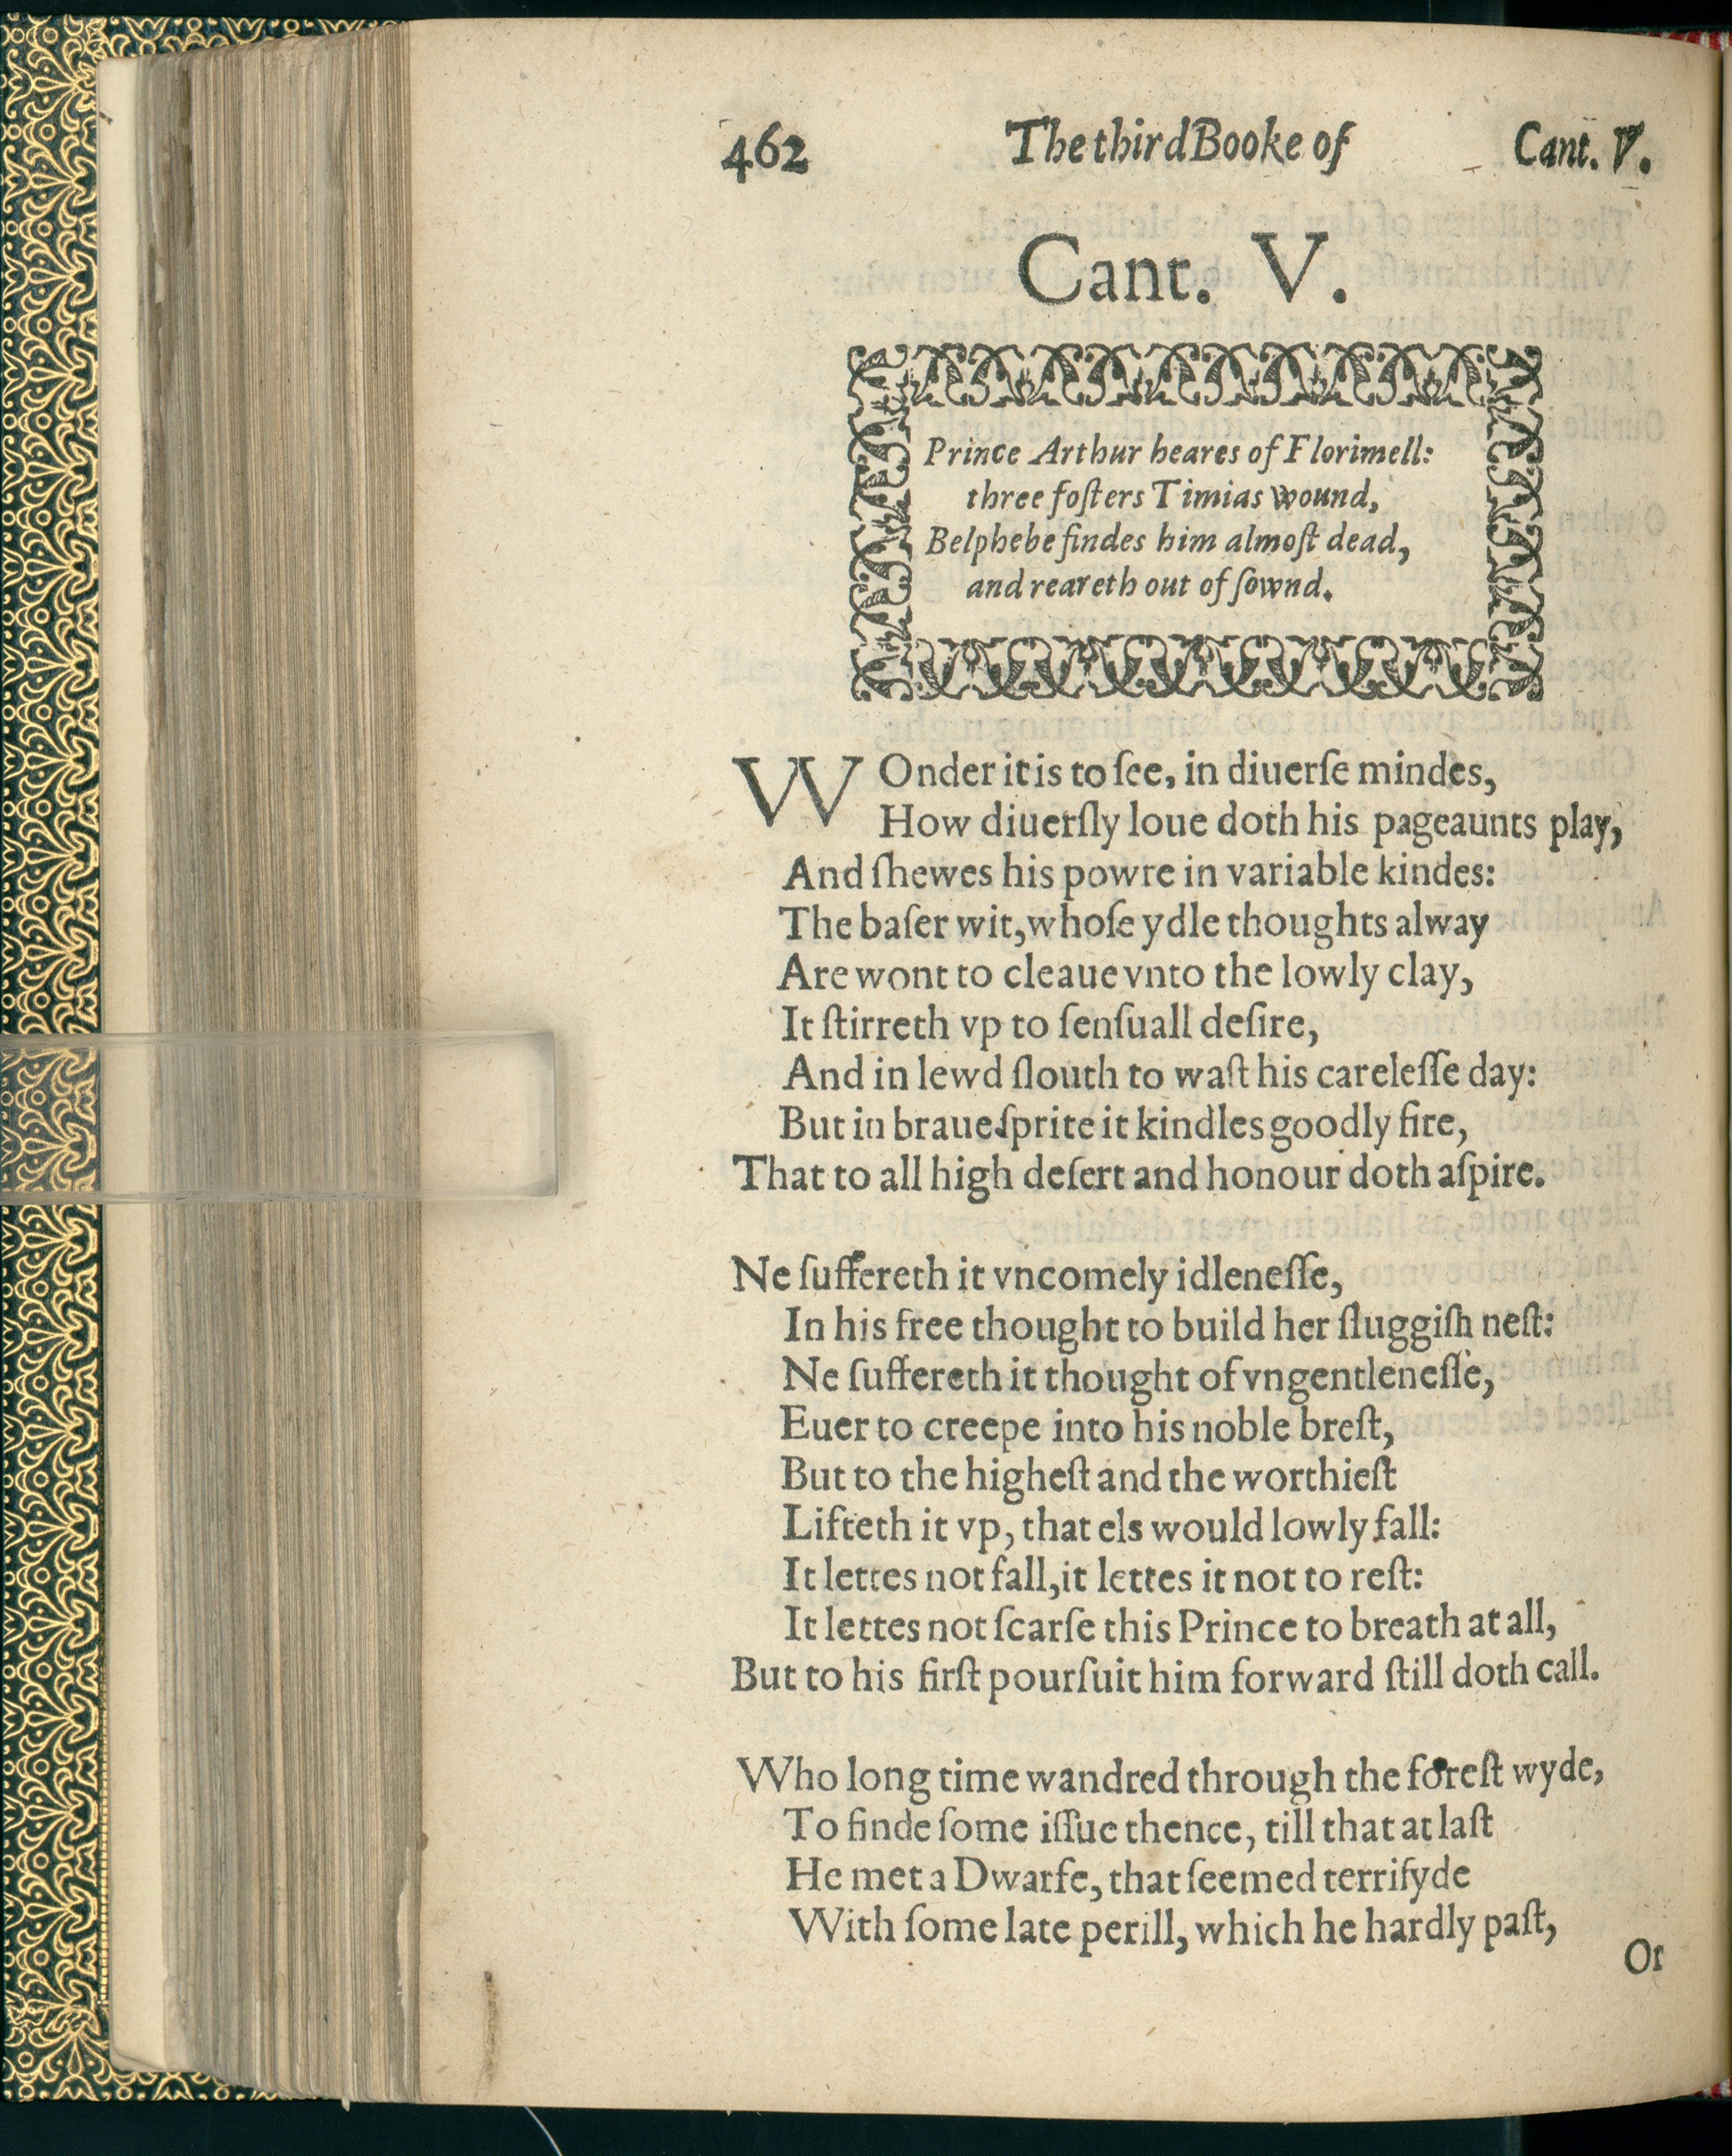 462 The third Booke of Cant. V.
Cant. V.
Prince Arthur heares of Florimell:
three foſters Timias wound,
Belphebe findes him almoſt dead,
and reareth out of ſownd.
WOnder it is to ſee, in diuerſe mindes,
How diuerſly loue doth his pageaunts play,
And ſhewes his powre in variable kindes:
The baſer wit, whoſe ydle thoughts alway
Are wont to cleaue vnto the lowly clay,
It ſtirreth vp to ſenſuall deſire,
And in lewd ſlouth to waſt his careleſſe day:
But in braue ſprite it kindles goodly fire,
That to all high deſert and honour doth aſpire.
Ne ſuffereth it vncomely idleneſſe,
In his free thought to build her ſluggiſh neſt:
Ne ſuffereth it thought of vngentleneſſe,
Euer to creepe into his noble breſt,
But to the higheſt and the worthieſt
Lifteth it vp, that els would lowly fall:
It lettes not fall, it lettes it not to reſt:
It lettes not ſcarſe this Prince to breath at all,
But to his firſt pourſuit him forward ſtill doth call.
Who long time wandred through the foreſt wyde,
To finde ſome iſſue thence, till that at laſt
He met a Dwarfe, that ſeemed terrifyde
With ſome late perill, which he hardly paſt,
Or